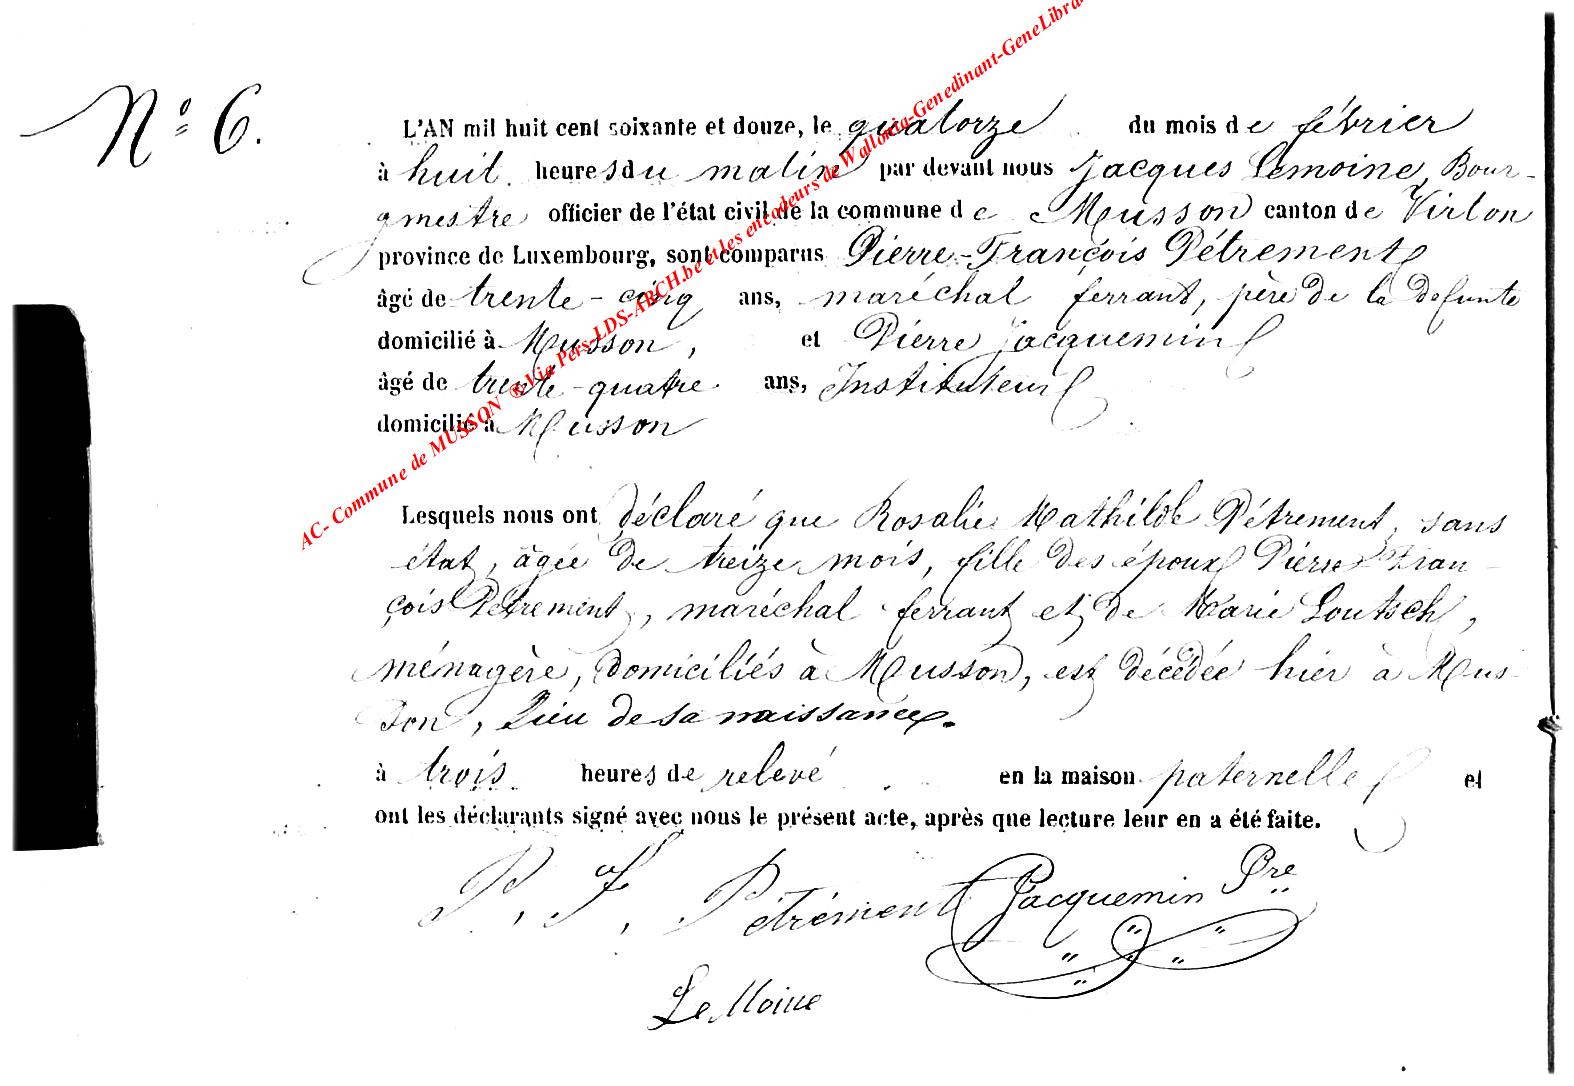 N° 6.
L'AN mil huit cent soixante et douze, le quatorze du mois de février
à huit heures du matin par devant nous Jacques Lemoine, Bour-
gmestre officier de l'état civil de la commune de Musson canton de Virton
province de Luxembourg, sont comparus Pierre-François Pétrement
âgé de trente-cinq ans, maréchal ferrant, père de la defunte
domicilié à Musson, et Pierre Jacquemin
âgé de trente-quatre ans, Instituteur
domicilié à Musson
Lesquels nous ont déclaré que Rosalie Mathilde Pétrement, sans
état, âgée de treize mois, fille des époux Pierre Fran-
çois Pétrement, maréchal ferrant et de Marie Loutsch,
ménagère, domiciliés à Musson, est décédée hier à Mus-
son, lieu de sa naissance.
à trois heures de relevé en la maison paternelle et
ont les déclarants signé avec nous le présent acte, après que lecture leur en a été faite.
P. F. Pétrément Jacquemin Pre
Le Moine
AC- Commune de MUSSON ® Via Pers-LDS-ARCH.be et les encodeurs de Wallonia-Genedinant-GeneLibra